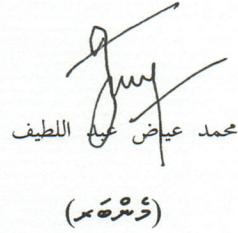 محمد عياض عبد اللطيف
(މެންބަރ)